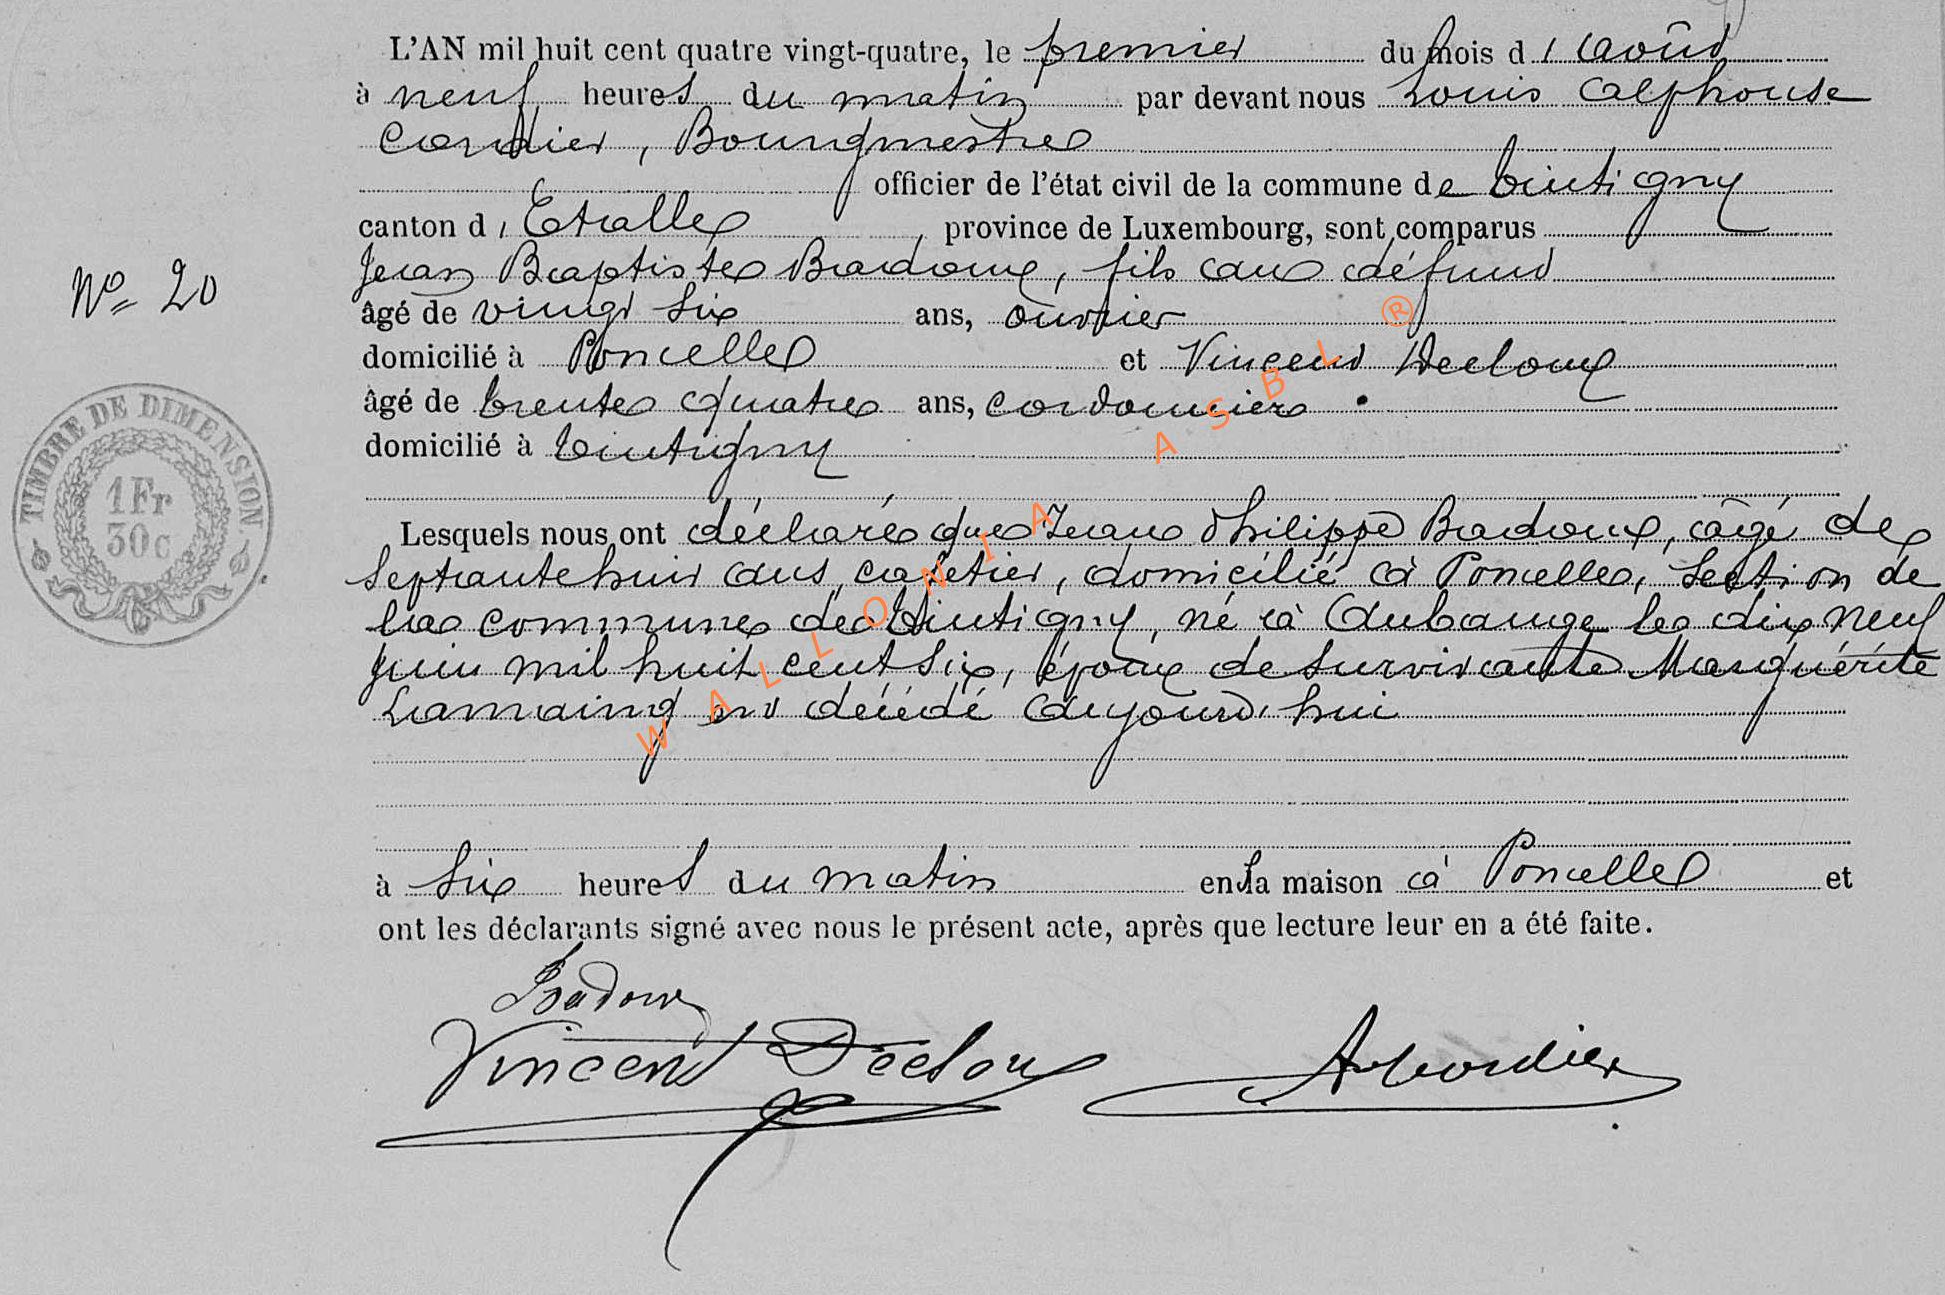 L'AN mil huit cent quatre vingt-quatre, le premier du mois d'Août
à neuf heures du matin par devant nous Louis Alphonse
Cordier, Bourgmestre
officier de l'état civil de la commune de Tintigny
canton d'Etalle, province de Luxembourg, sont comparus
Jean Baptiste Badoux, fils au défunt
N° 20
âgé de vingt six ans, ouvrier
domicilié à Poncelle et Vincent Decloux
âgé de trente quatre ans, cordonnier
domicilié à Tintigny
TIMBRE DE DIMENSION
1Fr
30c
Lesquels nous ont déclaré que Jean Philippe Badoux, âgé de
septante huit ans, cafetier, domicilié à Poncelle, section de
la commune de Tintigny, né à Aubange le dix neuf
juin mil huit cent six, époux de survivante Marguérite
Lamaing est décédé aujourd'hui
à six heures du matin en sa maison à Poncelle et
ont les déclarants signé avec nous le présent acte, après que lecture leur en a été faite.
Badoux
Vincent Decloux
A Cordier
WALLONIA ASBL ®